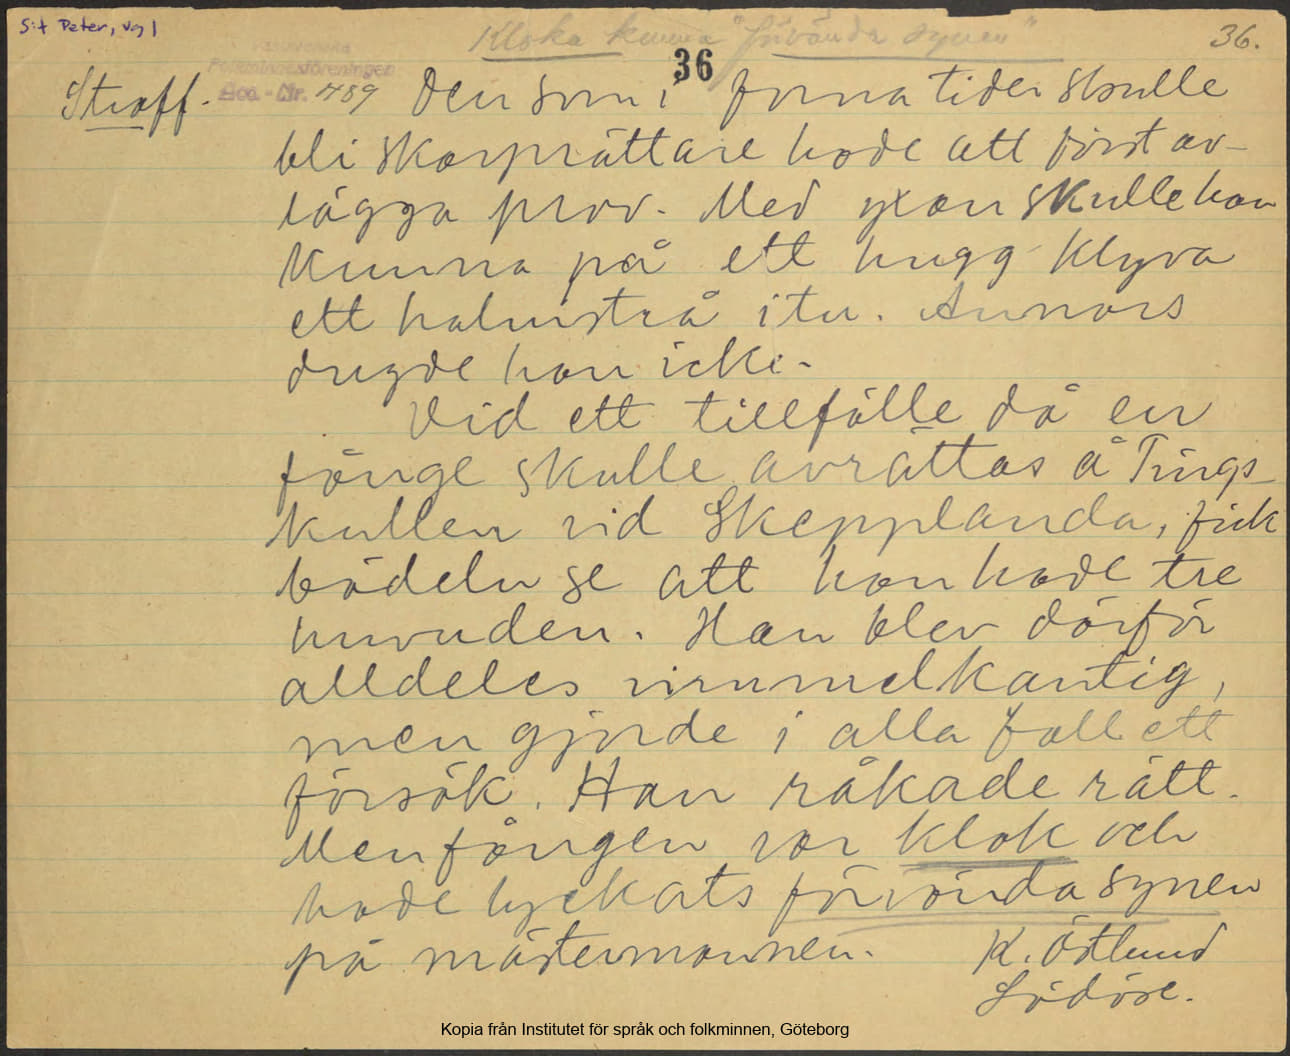 S:t Peter, Vg 1
Kloka kunna "förvända synen"
36
36.
Folkminnesföreningen
Straff.
Acc.-Nr. 789 Den som i forna tider skulle
bli skarprättare hade att först av-
lägga prov. Med yxan skulle han
kunna på ett hugg klyva
ett halmstrå itu. Annars
dugde han icke.
Vid ett tillfälle då en
fånge skulle avrättas å Tings-
kullen vid Skepplanda, fick
bödeln se att han hade tre
huvuden. Han blev därför
alldeles vimmelkantig,
men gjorde i alla fall ett
försök. Han råkade rätt.
Men fången var klok och
hade lyckats förvända synen
på mästermannen.
K. Östlund
Lödöse.
Kopia från Institutet för språk och folkminnen, Göteborg